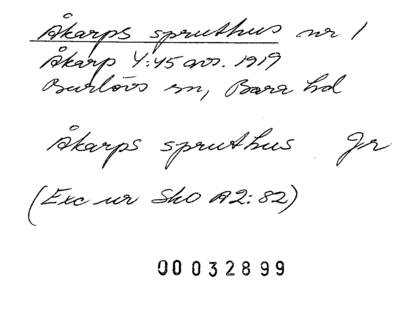 Åkarps spruthus nr 1
Åkarp 4:45 avs. 1919
Burlövs sn, Bara hd
Åkarps spruthus Jr
(Exc ur Sko A2:82)
00032899